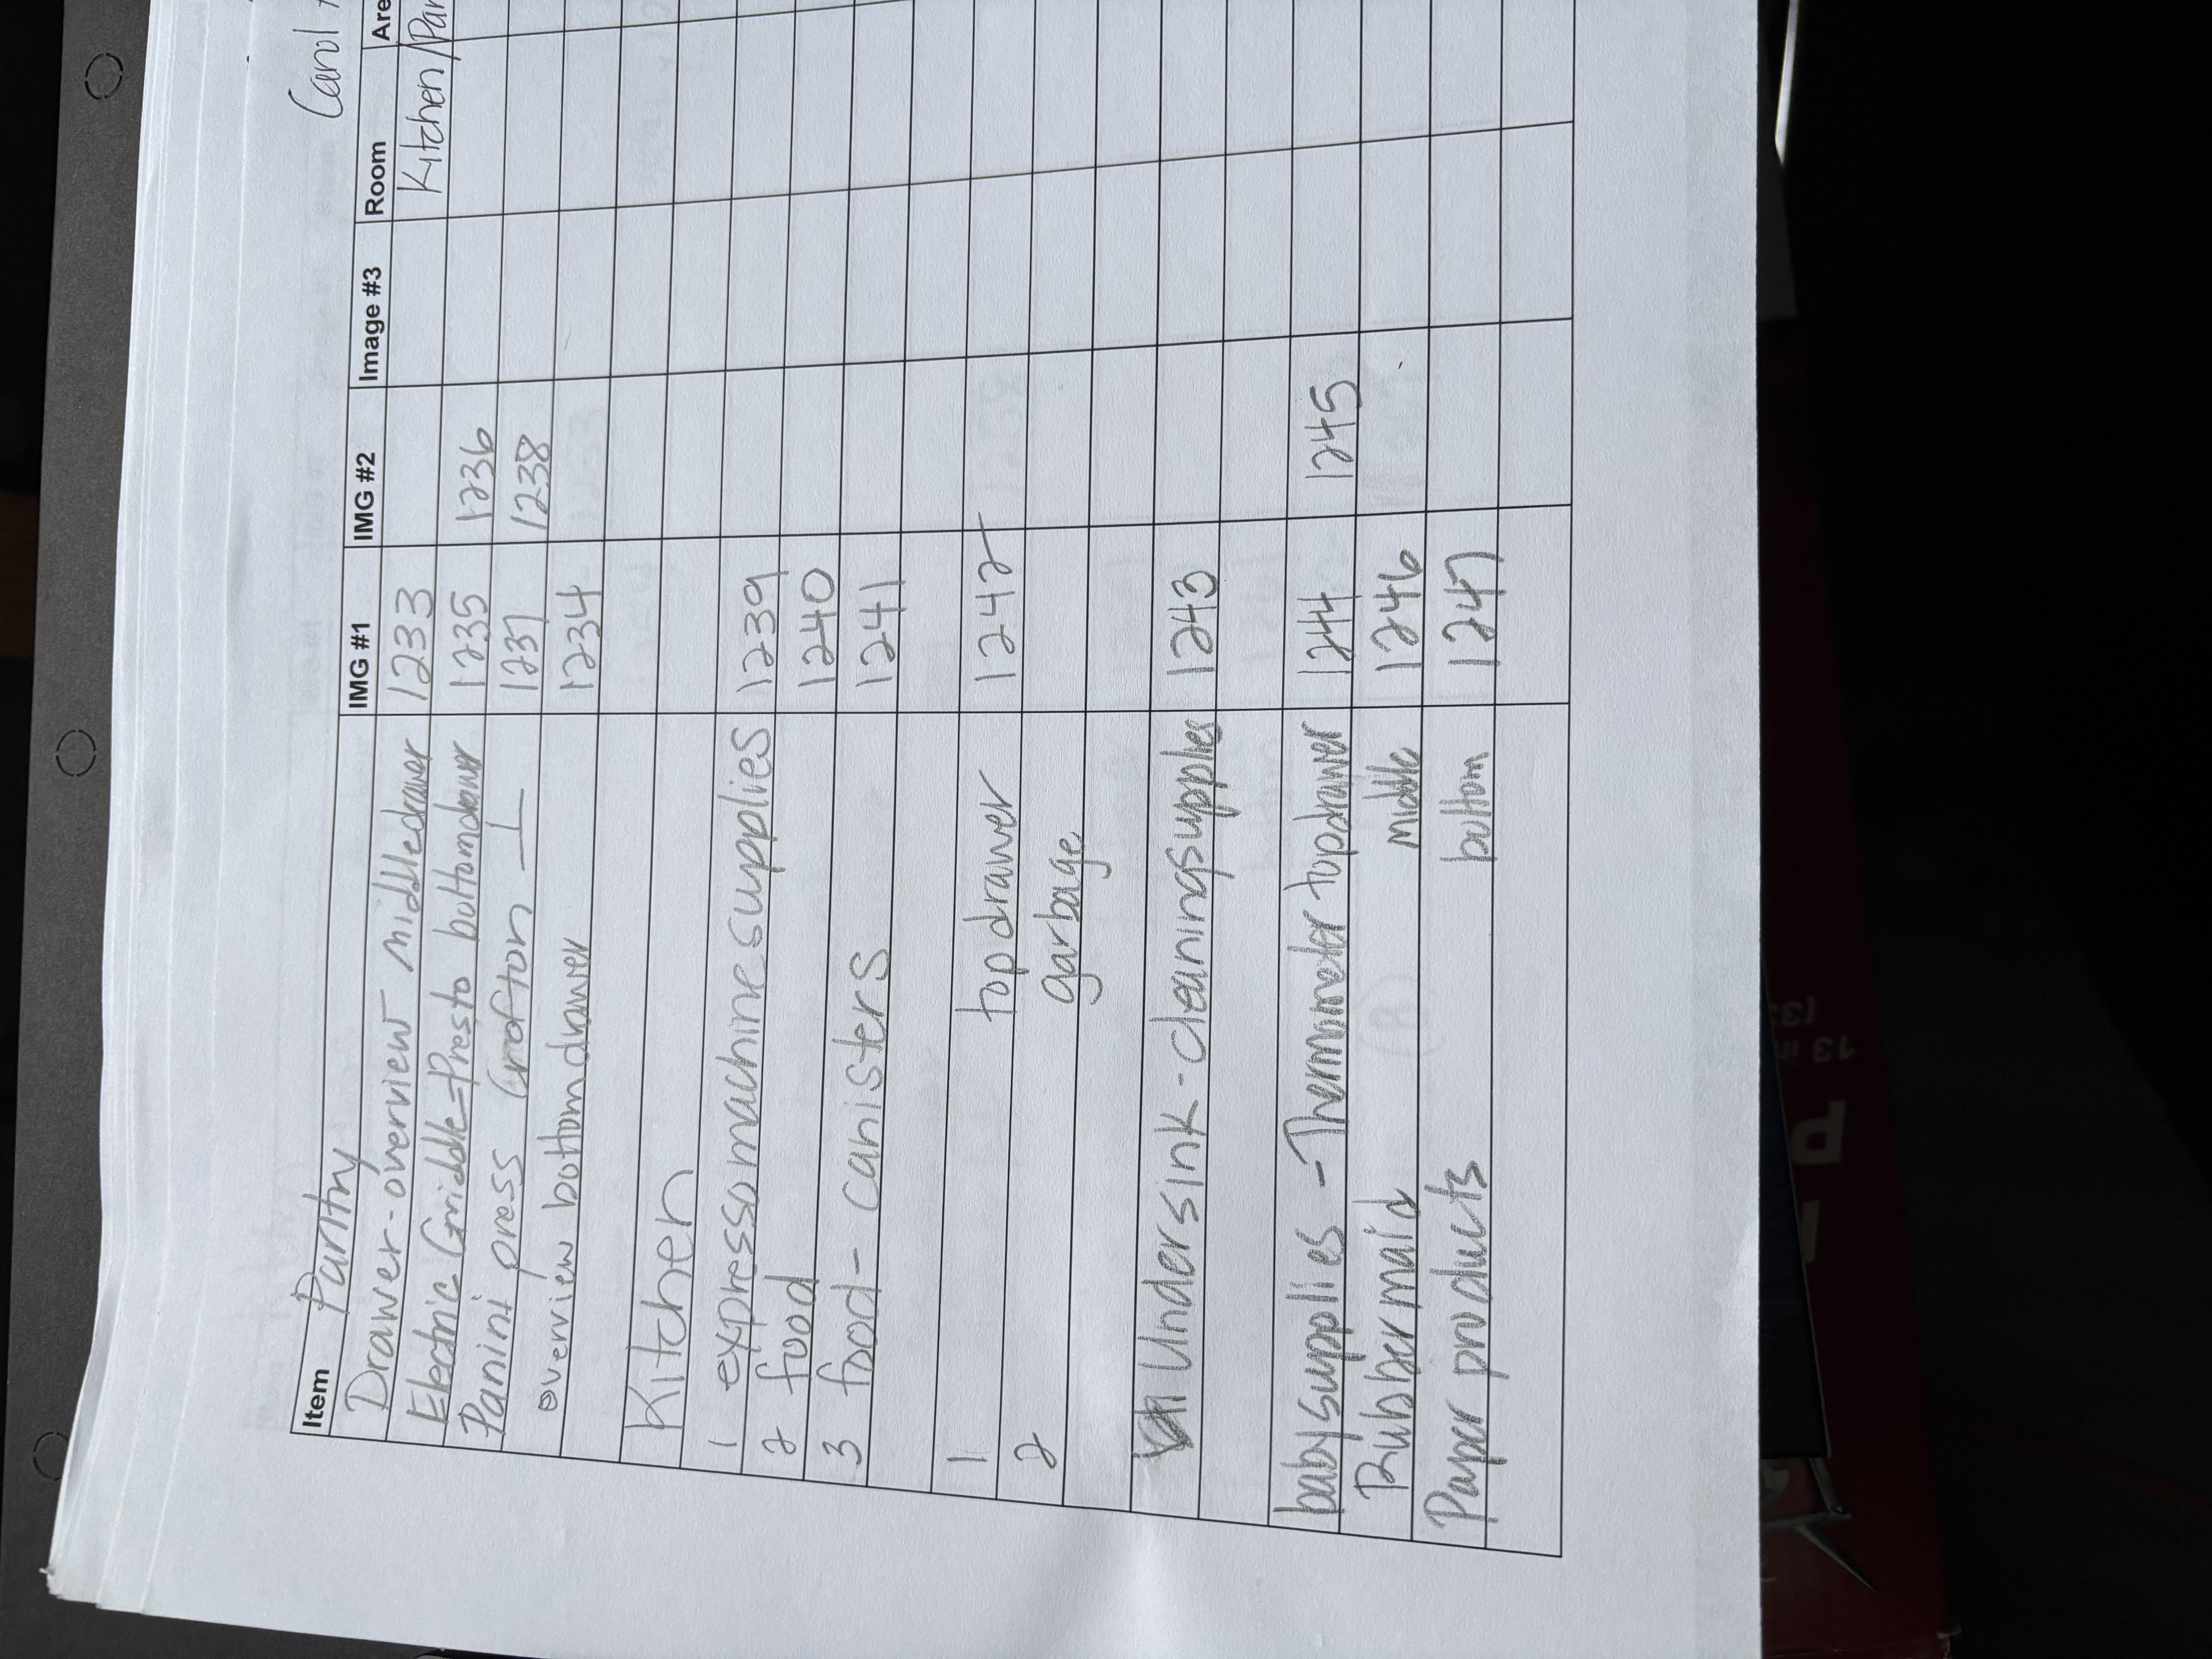 Carol
Item Pantry IMG #1 IMG #2 Image #3 Room Are
Drawer-overview middle drawer 1233 Kitchen/Pan
Electric Griddle=Presto bottom drawer 1235 1236
Panini press Crofton 1237 1238
overview bottom drawer 1234
Kitchen
1 expresso machine supplies 1239
2 food 1240
3 food - canisters 1241
1 top drawer 1242
2 garbage
Under sink - cleaning supplies 1243
baby supplies - Thermador top drawer 1244 1245
Rubbermaid middle 1246
Paper products bottom 1247
13 in